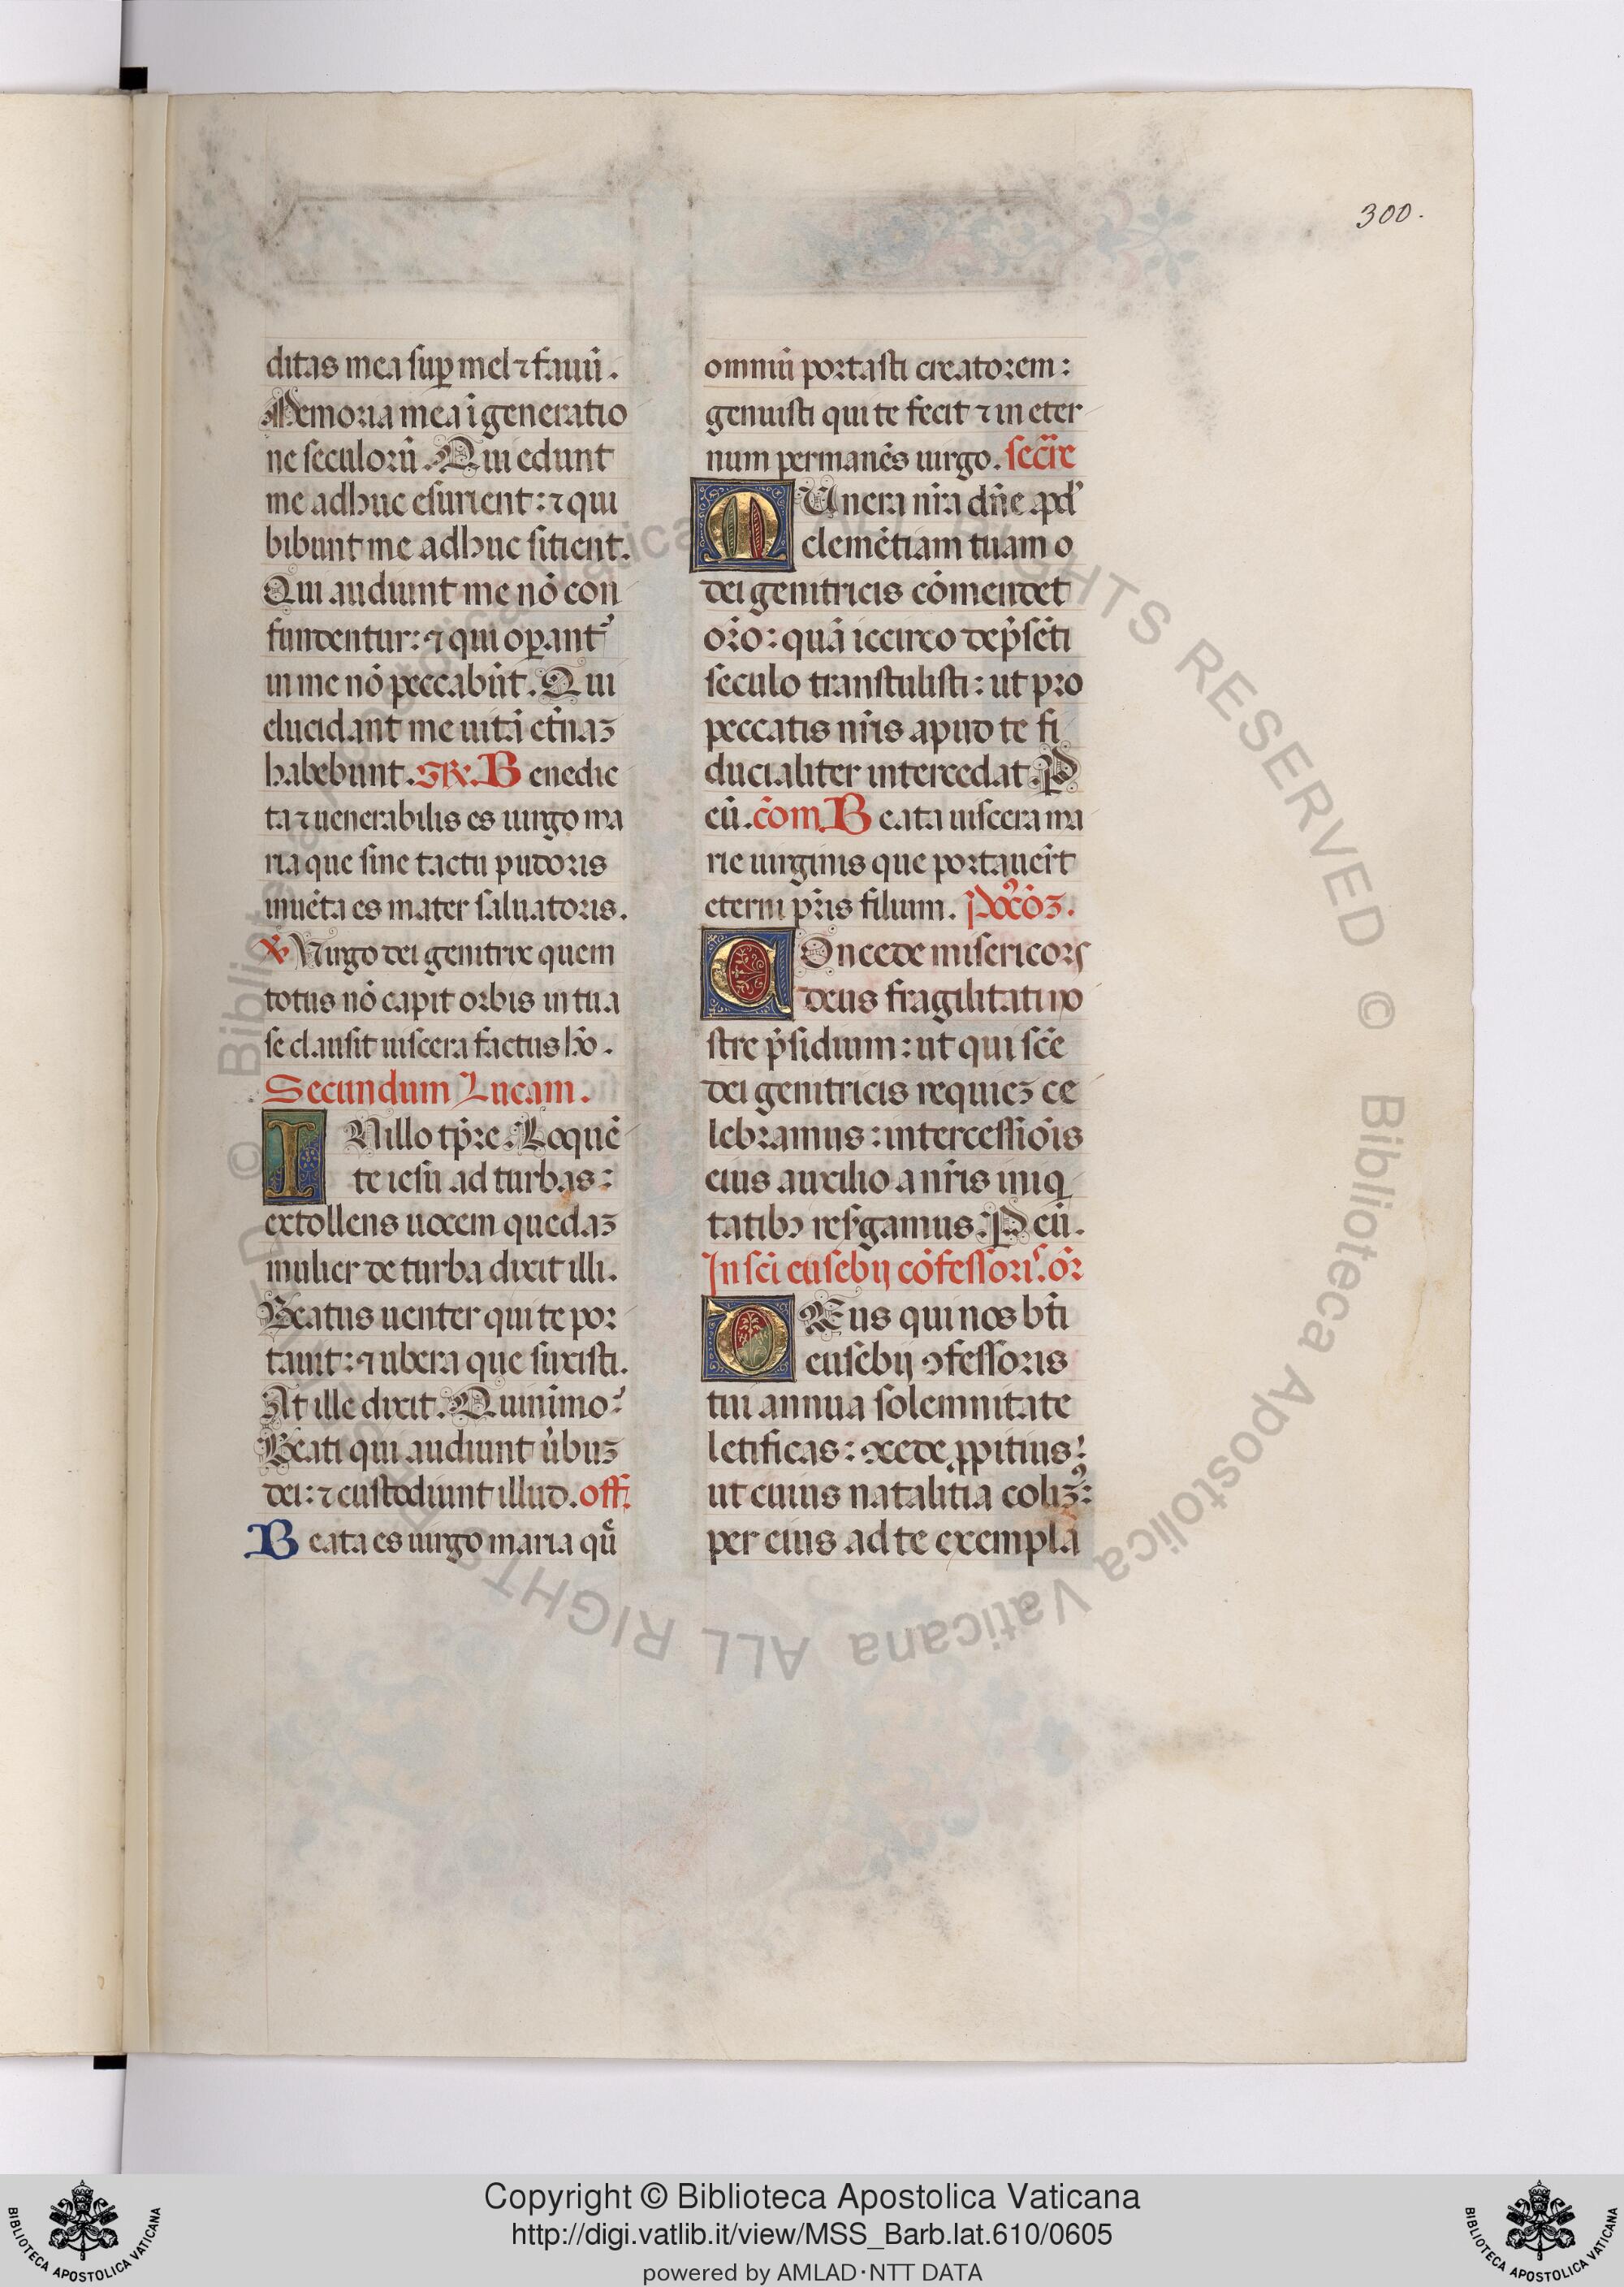 300.
ditas mea sup mel ⁊ fauū.
Memoria mea ī generatio
ne seculorū. Qui edunt
me adhuc esurient: ⁊ qui
bibunt me adhuc sitient.
Qui audiunt me nō con
fundentur: ⁊ qui opant᷑
in me nō peccabūt. Qui
elucidant me uitā et̄naꝫ
habebunt. GR. Benedic
ta ⁊ uenerabilis es uirgo ma
ria que sine tactu pudoris
inuēta es mater saluatoris.
℣ Uirgo dei genitrix quem
totus nō capit orbis in tua
se clausit uiscera factus hō.
Secundum Lucam.
IN illo tp̄re. Loquē
te iesu ad turbas:
extollens uocem quedaꝫ
mulier de turba dixit illi.
Beatus uenter qui te por
tauit: ⁊ ubera que suxisti.
At ille dixit. Quinimo?
Beati qui audiunt ūbuꝫ
dei: ⁊ custodiunt illud. off.
Beata es uirgo maria qū
omniū portasti creatorem:
genuisti qui te fecit ⁊ in eter
num permanēs uirgo. secr̄e
MUnera nr̄a dn̄e apd᷑
clemētiam tuam o
dei genitricis cōmendet
or̄o: quā iccirco de p̄sēti
seculo transtulisti: ut pro
peccatis nr̄is apud te fi
ducialiter intercedat. P
eū. cōm. Beata uiscera ma
rie uirginis que portauer̄t
eterni pr̄is filium. Pꝰcōꝫ.
COncede misericors
deus fragilitati no
stre p̄sidium: ut qui sc̄e
dei genitricis requieꝫ ce
lebramus: intercessiōis
eius auxilio a nr̄is iniq
tatibꝫ resʼgamus. P eū.
In sc̄i eusebij cōfessoriˢ. or̄
DEus qui nos bt̄i
eusebij ↄfessoris
tui annua solemnitate
letificas: ↄcede ꝓpitius:
ut cuius natalitia colimꝰ:
per eius ad te exempla
Copyright © Biblioteca Apostolica Vaticana
http://digi.vatlib.it/view/MSS_Barb.lat.610/0605
powered by AMLAD·NTT DATA
BIBLIOTECA APOSTOLICA VATICANA
BIBLIOTECA APOSTOLICA VATICANA
© Biblioteca Apostolica Vaticana ALL RIGHTS RESERVED © Biblioteca Apostolica Vaticana ALL RIGHTS RESERVED